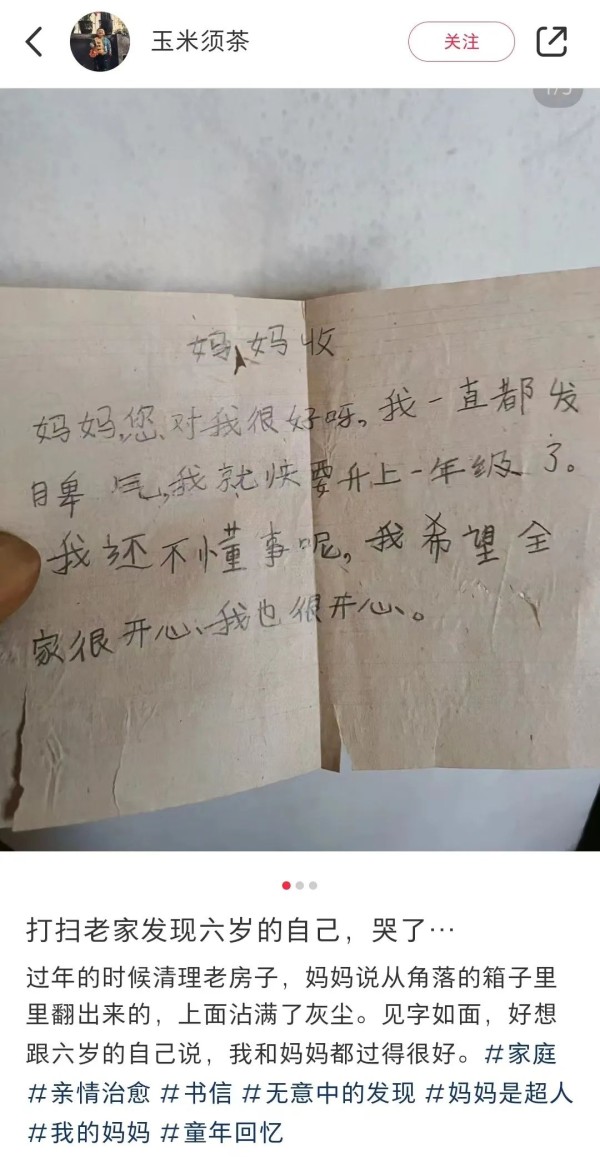 玉米须茶
关注
妈妈收
妈妈,您对我很好呀。我一直都发
睥气,我就快要升上一年级了。
我还不懂事呢,我希望全
家很开心、我也很开心。
打扫老家发现六岁的自己，哭了…
过年的时候清理老房子，妈妈说从角落的箱子里
里翻出来的，上面沾满了灰尘。见字如面，好想
跟六岁的自己说，我和妈妈都过得很好。#家庭
#亲情治愈 #书信 #无意中的发现 #妈妈是超人
#我的妈妈 #童年回忆